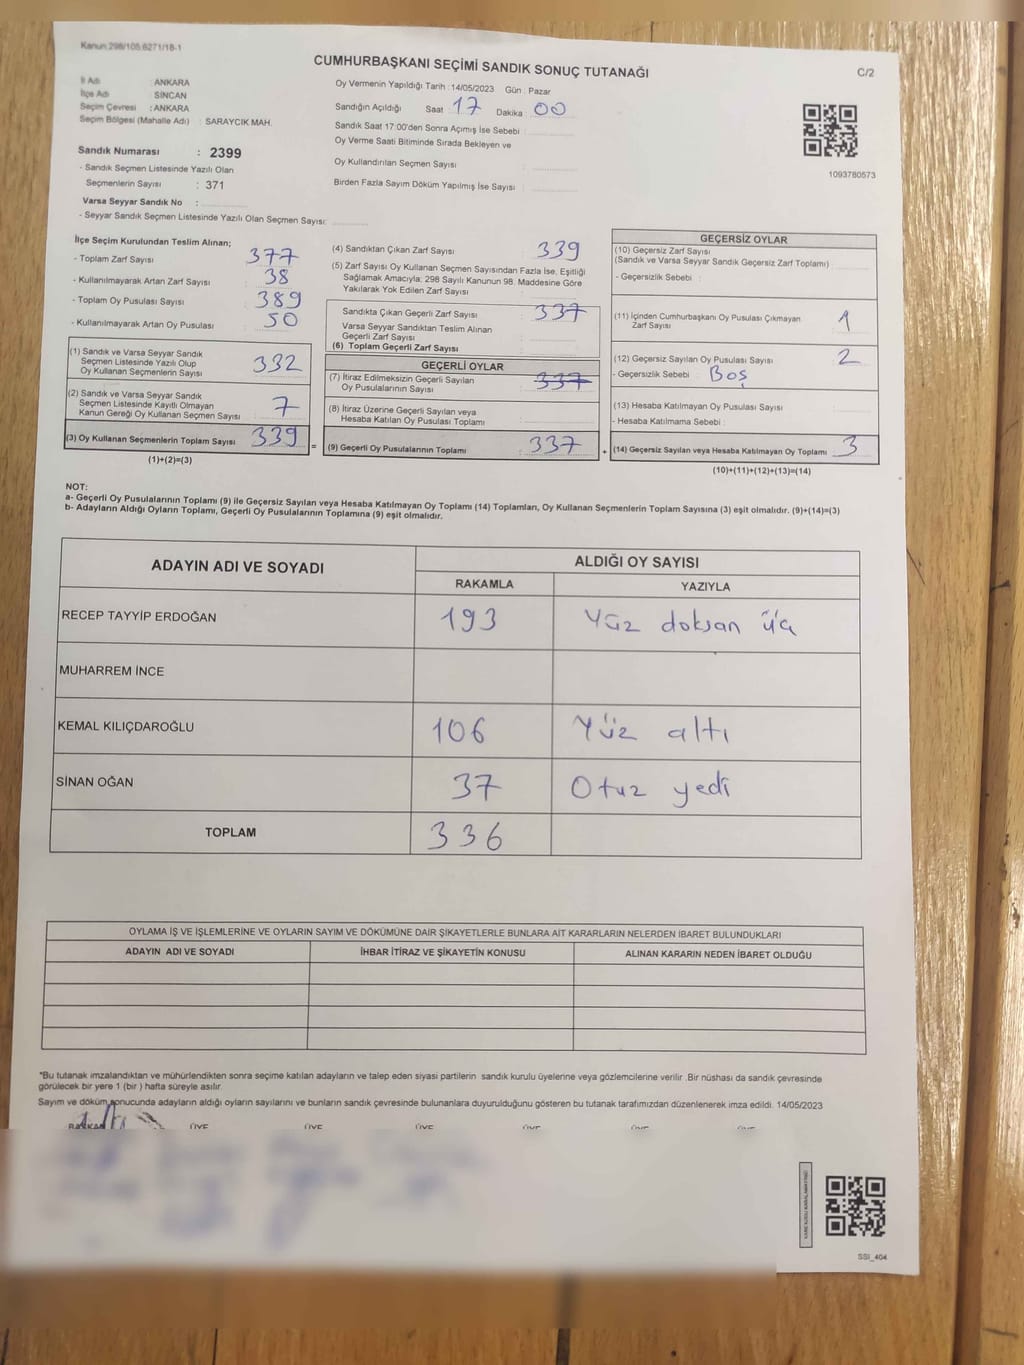 Kanun:298/105;6271/18-1
CUMHURBAŞKANI SEÇİMİ SANDIK SONUÇ TUTANAĞI
C/2
İl Adı : ANKARA
İlçe Adı : SİNCAN
Seçim Çevresi : ANKARA
Seçim Bölgesi (Mahalle Adı) : SARAYCIK MAH.
Sandık Numarası : 2399
- Sandık Seçmen Listesinde Yazılı Olan
Seçmenlerin Sayısı : 371
Varsa Seyyar Sandık No :
- Seyyar Sandık Seçmen Listesinde Yazılı Olan Seçmen Sayısı:
Oy Vermenin Yapıldığı Tarih :14/05/2023 Gün : Pazar
Sandığın Açıldığı Saat 17 Dakika 00
Sandık Saat 17:00'den Sonra Açımış İse Sebebi :
Oy Verme Saati Bitiminde Sırada Bekleyen ve
Oy Kullandırılan Seçmen Sayısı :
Birden Fazla Sayım Döküm Yapılmış İse Sayısı :
1093780573
İlçe Seçim Kurulundan Teslim Alınan;
- Toplam Zarf Sayısı : 377
- Kullanılmayarak Artan Zarf Sayısı : 38
- Toplam Oy Pusulası Sayısı : 389
- Kullanılmayarak Artan Oy Pusulası : 50
(1) Sandık ve Varsa Seyyar Sandık
Seçmen Listesinde Yazılı Olup
Oy Kullanan Seçmenlerin Sayısı : 332
(2) Sandık ve Varsa Seyyar Sandık
Seçmen Listesinde Kayıtlı Olmayan
Kanun Gereği Oy Kullanan Seçmen Sayısı : 7
(3) Oy Kullanan Seçmenlerin Toplam Sayısı : 339
(1)+(2)=(3)
(4) Sandıktan Çıkan Zarf Sayısı : 339
(5) Zarf Sayısı Oy Kullanan Seçmen Sayısından Fazla İse, Eşitliği
Sağlamak Amacıyla, 298 Sayılı Kanunun 98. Maddesine Göre
Yakılarak Yok Edilen Zarf Sayısı :
Sandıkta Çıkan Geçerli Zarf Sayısı : 337
Varsa Seyyar Sandıktan Teslim Alınan
Geçerli Zarf Sayısı :
(6) Toplam Geçerli Zarf Sayısı :
GEÇERLİ OYLAR
(7) İtiraz Edilmeksizin Geçerli Sayılan
Oy Pusulalarının Sayısı : 337
(8) İtiraz Üzerine Geçerli Sayılan veya
Hesaba Katılan Oy Pusulası Toplamı :
= (9) Geçerli Oy Pusulalarının Toplamı : 337 +
GEÇERSİZ OYLAR
(10) Geçersiz Zarf Sayısı
(Sandık ve Varsa Seyyar Sandık Geçersiz Zarf Toplamı) :
- Geçersizlik Sebebi :
(11) İçinden Cumhurbaşkanı Oy Pusulası Çıkmayan
Zarf Sayısı : 1
(12) Geçersiz Sayılan Oy Pusulası Sayısı : 2
- Geçersizlik Sebebi : Boş
(13) Hesaba Katılmayan Oy Pusulası Sayısı :
- Hesaba Katılmama Sebebi :
(14) Geçersiz Sayılan veya Hesaba Katılmayan Oy Toplamı : 3
(10)+(11)+(12)+(13)=(14)
NOT:
a- Geçerli Oy Pusulalarının Toplamı (9) ile Geçersiz Sayılan veya Hesaba Katılmayan Oy Toplamı (14) Toplamları, Oy Kullanan Seçmenlerin Toplam Sayısına (3) eşit olmalıdır. (9)+(14)=(3)
b- Adayların Aldığı Oyların Toplamı, Geçerli Oy Pusulalarının Toplamına (9) eşit olmalıdır.
ADAYIN ADI VE SOYADI
ALDIĞI OY SAYISI
RAKAMLA YAZIYLA
RECEP TAYYİP ERDOĞAN 193 Yüz doksan üç
MUHARREM İNCE
KEMAL KILIÇDAROĞLU 106 Yüz altı
SİNAN OĞAN 37 Otuz yedi
TOPLAM 336
OYLAMA İŞ VE İŞLEMLERİNE VE OYLARIN SAYIM VE DÖKÜMÜNE DAİR ŞİKAYETLERLE BUNLARA AİT KARARLARIN NELERDEN İBARET BULUNDUKLARI
ADAYIN ADI VE SOYADI İHBAR İTİRAZ VE ŞİKAYETİN KONUSU ALINAN KARARIN NEDEN İBARET OLDUĞU
*Bu tutanak imzalandıktan ve mühürlendikten sonra seçime katılan adayların ve talep eden siyasi partilerin sandık kurulu üyelerine veya gözlemcilerine verilir .Bir nüshası da sandık çevresinde
görülecek bir yere 1 (bir ) hafta süreyle asılır.
Sayım ve döküm sonucunda adayların aldığı oyların sayılarını ve bunların sandık çevresinde bulunanlara duyurulduğunu gösteren bu tutanak tarafımızdan düzenlenerek imza edildi. 14/05/2023
BAŞKAN ÜYE ÜYE ÜYE ÜYE ÜYE
SSI_404